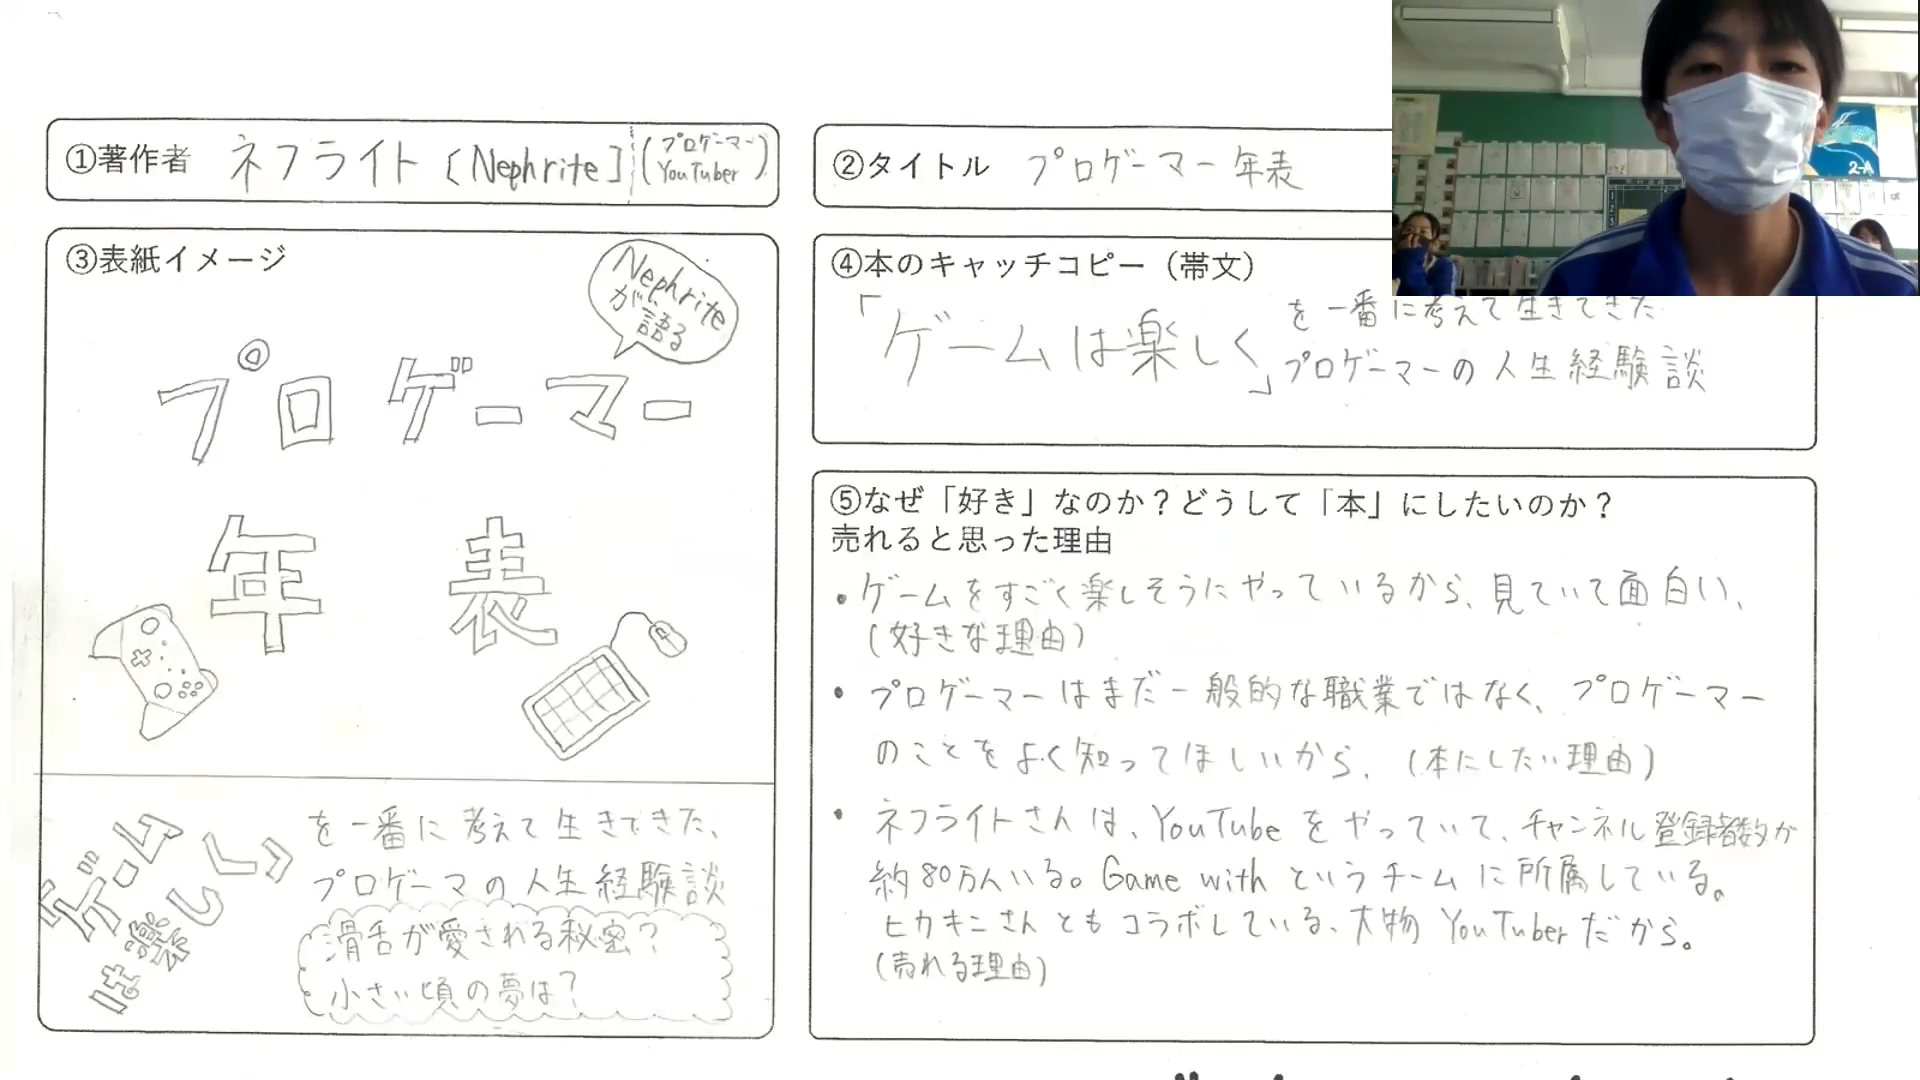 ①著作者 ネフライト [Nephrite] (プロゲーマー YouTuber)
②タイトル プロゲーマー年表
③表紙イメージ
Nephrite
が
語る
プロゲーマー
年表
「ゲームは楽しく」
を一番に考えて生きてきた、
プロゲーマの人生経験談
滑舌が愛される秘密?
小さい頃の夢は?
④本のキャッチコピー（帯文）
「ゲームは楽しく」を一番に考えて生きてきた
プロゲーマーの人生経験談
⑤なぜ「好き」なのか？どうして「本」にしたいのか？
売れると思った理由
・ゲームをすごく楽しそうにやっているから、見ていて面白い、
(好きな理由)
・プロゲーマーはまだ一般的な職業ではなく、プロゲーマー
のことをよく知ってほしいから、(本にしたい理由)
・ネフライトさんは、YouTubeをやっていて、チャンネル登録者数が
約80万人いる。Game withというチームに所属している。
ヒカキンさんともコラボしている、大物YouTuberだから。
(売れる理由)
2-A